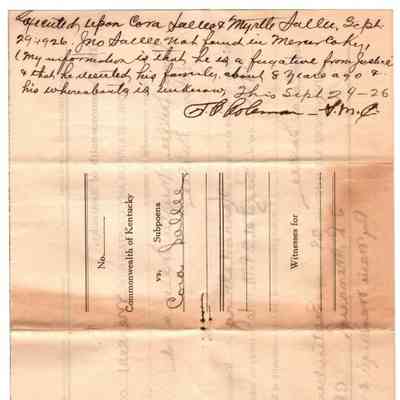 Executed upon Cora Sallee & Myrtle Sallee, Sept
29, 1926. Jno Sallee not found in Mercer Co Ky,
(My information is that he is a fugative from Justice
& that he deserted his family about 8 years ago &
his whereabouts is unknown, This Sept 29-26
Coleman
No.
Commonwealth of Kentucky
vs. Subpoena
Cora Sallee
Witnesses for